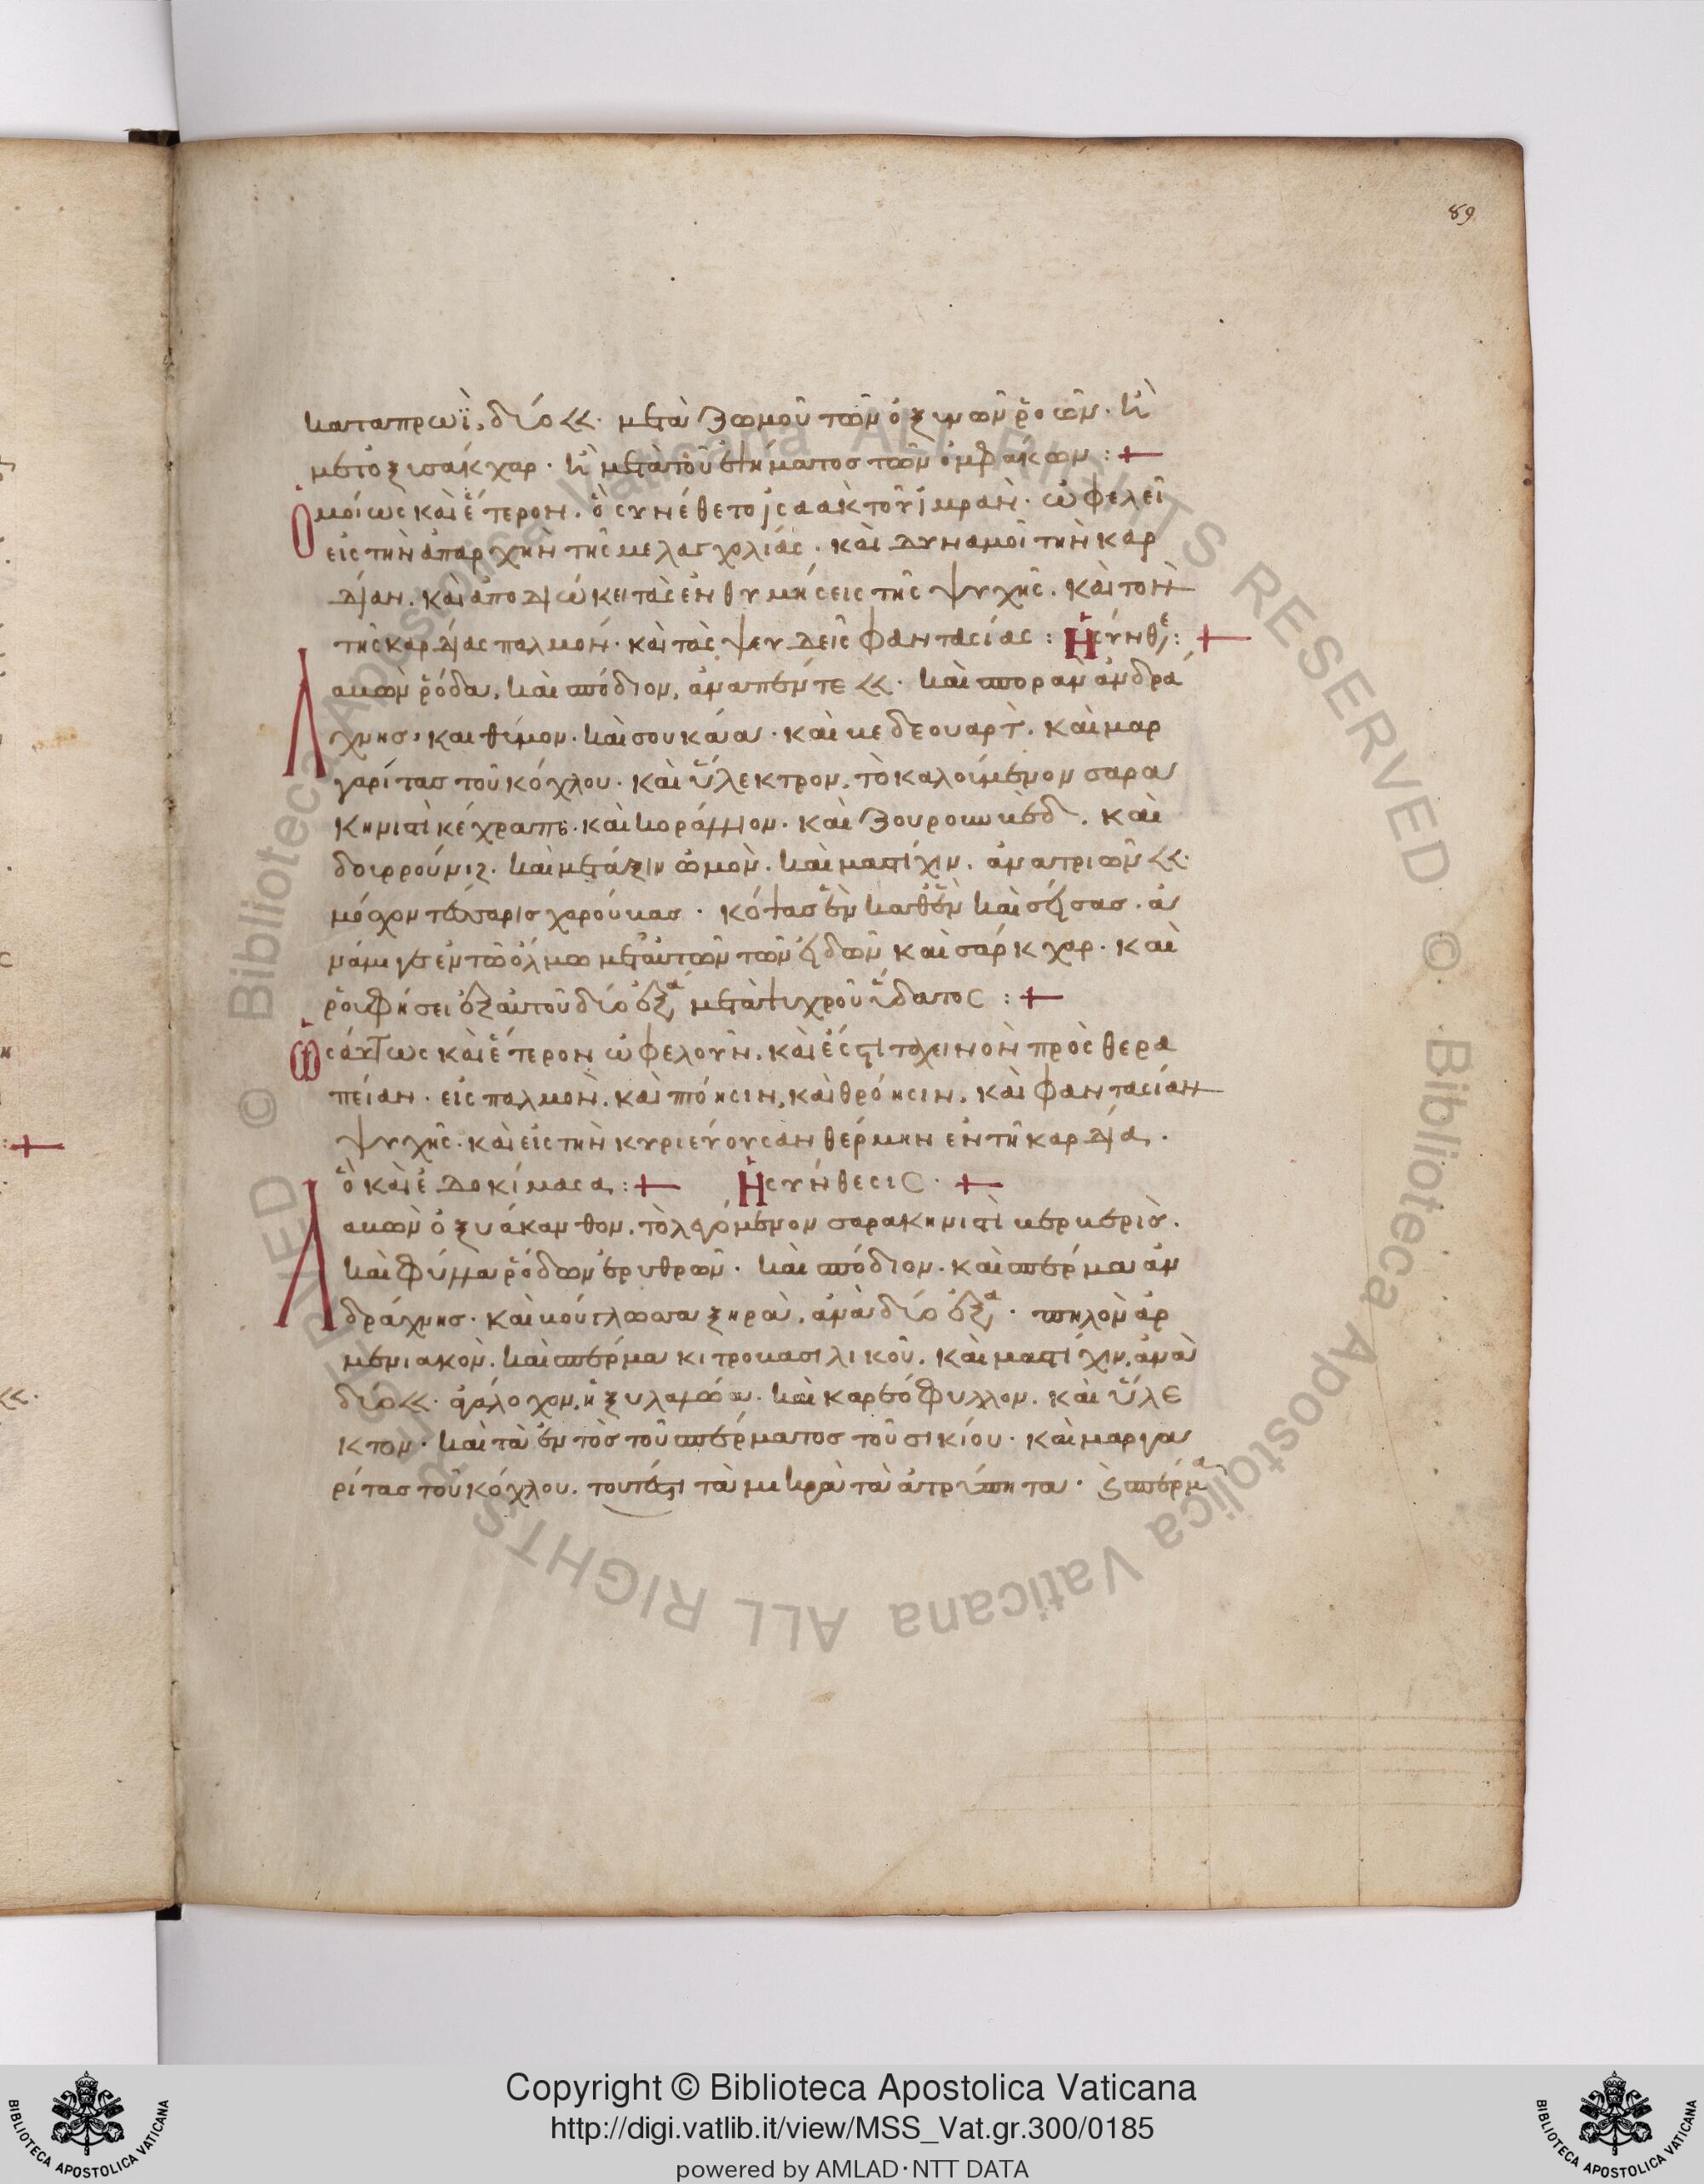 89
καταπρωΐ, δύο <<. μετὰ ζωμοῦ τῶν ὀξυνῶν ῥοῶν. κ(αὶ)
μετ' ὀξυσάκχαρ. κ(αὶ) μετὰ τοῦ ἑψήματος τῶν ὀμφάκων :+
Ὁμοίως καὶ ἕτερον. ὃ συνέθετο ἰσαὰκ τοῦ ἰμρὰν. ὠφελεῖ
εἰς τὴν ἀπαρχὴν τῆς μελαγχολίας. καὶ δυναμοῖ τὴν καρ
δίαν. καὶ ἀποδιώκει τὰς ἐνθυμήσεις τῆς ψυχῆς. καὶ τὸν
τῆς καρδίας παλμόν. καὶ τὰς ψευδεῖς φαντασίας : Ἡ σύνθε :+
Λαβὼν ῥόδα, καὶ σπόδιον, ἀνὰ πέντε <<. καὶ σπορὰν ἀνδρά
χνης, καὶ θύμον. καὶ σουκάα. καὶ κεδεουάρτ. καὶ μαρ
γαρίτας τοῦ κόχλου. καὶ ἤλεκτρον, τὸ καλούμενον σαρα
κηνιστὶ κέχραπε. καὶ κοράλλιον. καὶ ζουρουνκέδ. καὶ
δουρρούνιζ. καὶ μετάξιν ὠμὸν. καὶ μαστίχην. ἀνὰ τριῶν <<.
μόσχον τέσσαρις χαρούκας. κόψας ἓν καθ' ἓν καὶ σήσας. ἀ
νάμιγε ἐν τῶ ὅλμω μετ' αὐτῶν τῶν εἰδῶν καὶ σάρκχαρ. καὶ
ῥοιφήσει ἐξ αὐτοῦ δύο ἐξά μετὰ ψυχροῦ ὕδατος :+
Ὡσαύτως καὶ ἕτερον ὠφελοῦν. καὶ ἐστὶ τοχεινὸν πρὸς θερα
πείαν. εἰς παλμὸν. καὶ πτόησιν, καὶ θρόησιν. καὶ φαντασίαν
ψυχῆς. καὶ εἰς τὴν κυριεύουσαν θέρμην ἐν τῆ καρδία.
ὃ καὶ ἐδοκίμασα :+ Ἡ σύνθεσις. +
Λαβὼν ὀξυάκανθον. τὸ λεγόμενον σαρακηνιστὶ κερκερισ.
καὶ φύλλα ῥόδων ἐρυθρῶν. καὶ σπόδιον. καὶ σπέρμα ἀν
δράχνης. καὶ βούγλωσσα ξηρὰ, ἀνὰ δύο ἐξά. πηλὸν ἀρ
μενιακὸν. καὶ σπέρμα κιτροβασιλικοῦ. καὶ μαστίχην, ἀνὰ
δύο <<. ἀγάλοχον, ἢ ξυλαλῶα. καὶ καρεόφυλλον. καὶ ἤλε
κτον. καὶ τὰ ἐντὸς τοῦ σπέρματος τοῦ σικίου. καὶ μαργα
ρίτας τοῦ κόχλου. τουτέστι τὰ μικρὰ τὰ ἀτρύπητα. κ(αὶ) σπέρμα
Copyright © Biblioteca Apostolica Vaticana
http://digi.vatlib.it/view/MSS_Vat.gr.300/0185
powered by AMLAD·NTT DATA
BIBLIOTECA APOSTOLICA VATICANA
BIBLIOTECA APOSTOLICA VATICANA